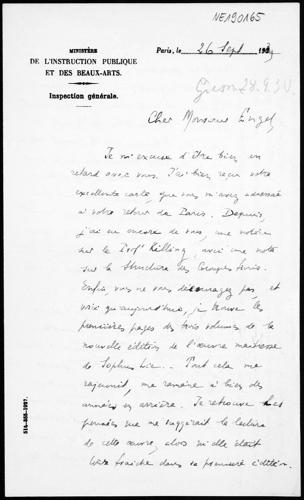 NE190165
MINISTÈRE
DE L'INSTRUCTION PUBLIQUE
ET DES BEAUX-ARTS.
Inspection générale.
Paris, le 26 Sept 193
28.9.30
Cher Monsieur Engel
Je m'excuse d'être bien en
retard avec vous. J'ai bien reçu votre
excellente carte, que vous m'avez adressée
à votre retour de Paris. Depuis,
j'ai eu encore de vous, une notice
sur le Prof Killing, avec une note
sur la structure des Groupes finis.
Enfin, vous ne vous découragez pas, et
voici qu'aujourd'hui, je trouve les
premières pages des trois volumes de la
nouvelle édition de l'œuvre maîtresse
de Sophus Lie... Tout cela me
rajeunit, me ramène à bien des
années en arrière. Je retrouve les
pensées que me suggérait la lecture
de cette œuvre, alors qu'elle était
toute fraîche dans sa première édition.
514-566-1927.